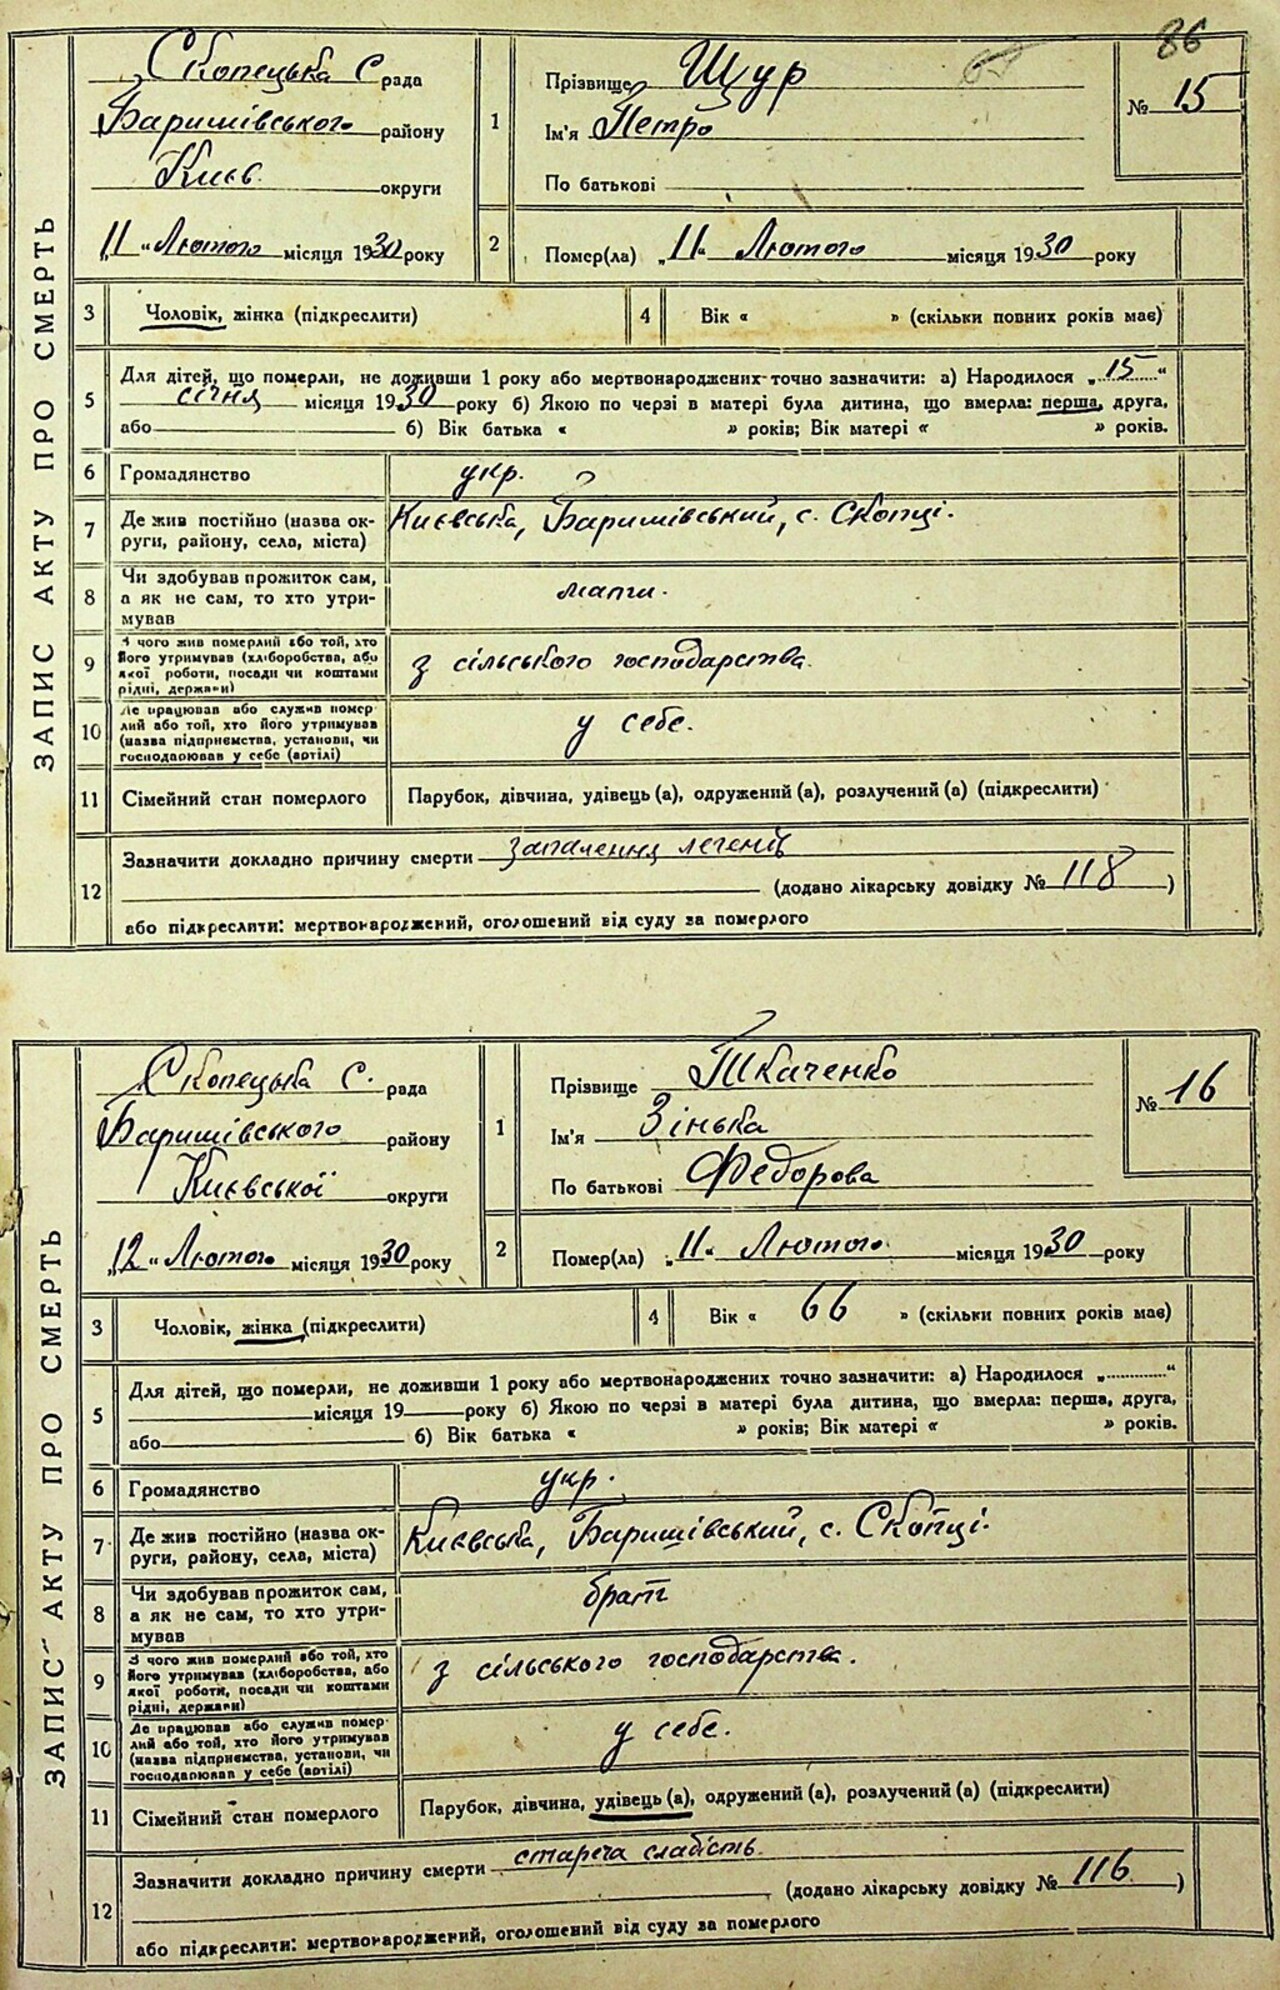 86
ЗАПИС АКТУ ПРО СМЕРТЬ
Скопецька С рада
Баришівського району
Києв. округи
„11 “ Лютого місяця 1930 року
1
Прізвище Щур
Ім'я Петро
По батькові
№ 15
2
Помер(ла) „11“ Лютого місяця 1930 року
3 Чоловік, жінка (підкреслити)
4 Вік « » (скільки повних років має)
5
Для дітей, що померли, не доживши 1 року або мертвонароджених точно зазначити: а) Народилося „15“
січня місяця 1930 року б) Якою по черзі в матері була дитина, що вмерла: перша, друга,
або б) Вік батька « » років; Вік матері « » років.
6 Громадянство укр.
7 Де жив постійно (назва ок-
руги, району, села, міста)
Києвська, Баришівський, с. Скопці.
8 Чи здобував прожиток сам,
а як не сам, то хто утри-
мував
мати.
9 З чого жив померлий або той, хто
його утримував (хліборобства, або
якої роботи, посади чи коштами
рідні, держави)
з сільського господарства.
10 Де працював або служив помер-
лий або той, хто його утримував
(назва підприємства, установи, чи
господарював у себе (артілі)
у себе.
11 Сімейний стан померлого Парубок, дівчина, удівець (а), одружений (а), розлучений (а) (підкреслити)
12
Зазначити докладно причину смерти запалення легенів
(додано лікарську довідку № 118 )
або підкреслити: мертвонароджений, оголошений від суду за померлого
ЗАПИС АКТУ ПРО СМЕРТЬ
Скопецька С. рада
Баришівського району
Києвської округи
„12 “ Лютого місяця 1930 року
1
Прізвище Ткаченко
Ім'я Зінька
По батькові Федорова
№ 16
2
Помер(ла) „11“ Лютого місяця 1930 року
3 Чоловік, жінка (підкреслити)
4 Вік « 66 » (скільки повних років має)
5
Для дітей, що померли, не доживши 1 року або мертвонароджених точно зазначити: а) Народилося „ “
місяця 19 року б) Якою по черзі в матері була дитина, що вмерла: перша, друга,
або б) Вік батька « » років; Вік матері « » років.
6 Громадянство укр.
7 Де жив постійно (назва ок-
руги, району, села, міста)
Києвська, Баришівський, с. Скопці.
8 Чи здобував прожиток сам,
а як не сам, то хто утри-
мував
брат
9 З чого жив померлий або той, хто
його утримував (хліборобства, або
якої роботи, посади чи коштами
рідні, держави)
з сільського господарства.
10 Де працював або служив помер-
лий або той, хто його утримував
(назва підприємства, установи, чи
господарював у себе (артілі)
у себе.
11 Сімейний стан померлого Парубок, дівчина, удівець (а), одружений (а), розлучений (а) (підкреслити)
12
Зазначити докладно причину смерти стареча слабість
(додано лікарську довідку № 116 )
або підкреслити: мертвонароджений, оголошений від суду за померлого